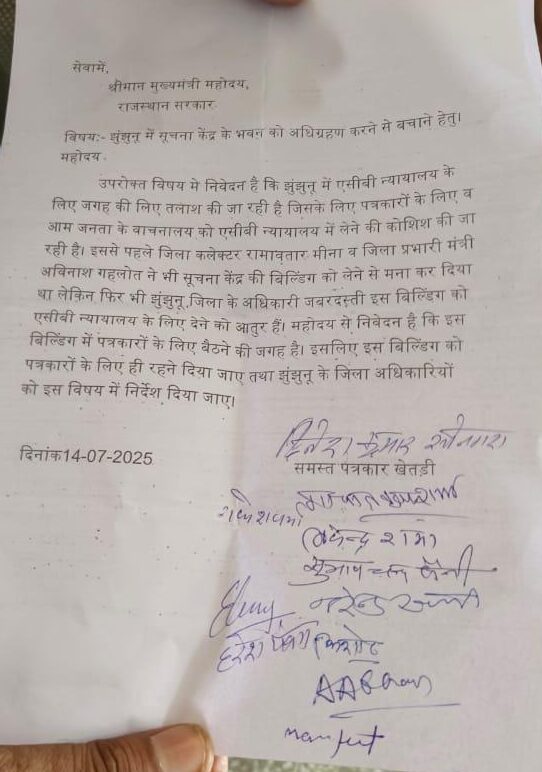 सेवामें,
श्रीमान मुख्यमंत्री महोदय,
राजस्थान सरकार
विषयः- झुंझुनू में सूचना केंद्र के भवन को अधिग्रहण करने से बचाने हेतु।
महोदय
उपरोक्त विषय में निवेदन है कि झुंझुनू में एसीबी न्यायालय के
लिए जगह की लिए तलाश की जा रही है जिसके लिए पत्रकारों के लिए व
आम जनता के वाचनालय को एसीबी न्यायालय में लेने की कोशिश की जा
रही है। इससे पहले जिला कलेक्टर रामावतार मीना व जिला प्रभारी मंत्री
अविनाश गहलोत ने भी सूचना केंद्र की बिल्डिंग को लेने से मना कर दिया
था लेकिन फिर भी झुंझुनू जिला के अधिकारी जबरदस्ती इस बिल्डिंग को
एसीबी न्यायालय के लिए देने को आतुर हैं। महोदय से निवेदन है कि इस
बिल्डिंग में पत्रकारों के लिए बैठने की जगह है। इसलिए इस बिल्डिंग को
पत्रकारों के लिए ही रहने दिया जाए तथा झुंझुनू के जिला अधिकारियों
को इस विषय में निर्देश दिया जाए।
दिनांक14-07-2025
समस्त पत्रकार खेतड़ी